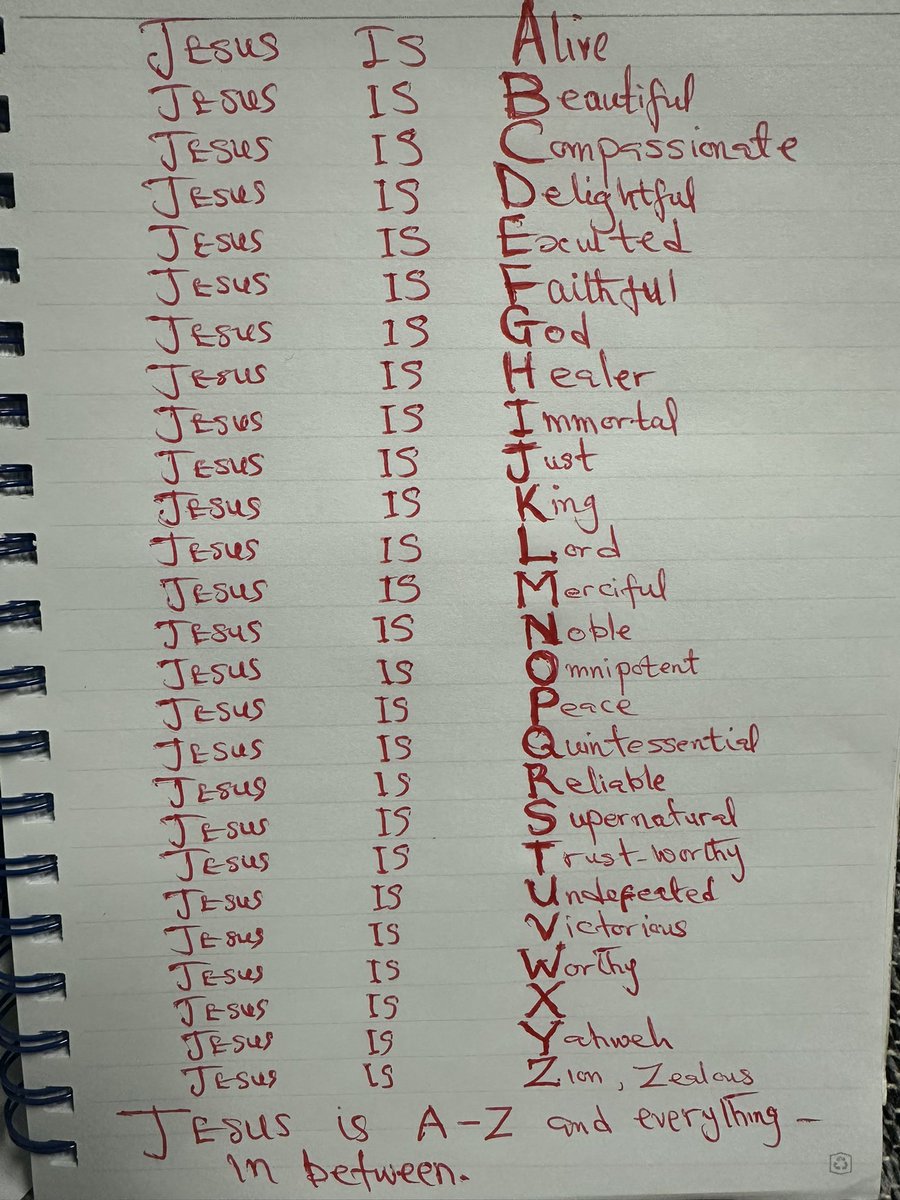 JESUS IS Alive
JESUS IS Beautiful
JESUS IS Compassionate
JESUS IS Delightful
JESUS IS Exulted
JESUS IS Faithful
JESUS IS God
JESUS IS Healer
JESUS IS Immortal
JESUS IS Just
JESUS IS King
JESUS IS Lord
JESUS IS Merciful
JESUS IS Noble
JESUS IS Omnipotent
JESUS IS Peace
JESUS IS Quintessential
JESUS IS Reliable
JESUS IS Supernatural
JESUS IS Trust-worthy
JESUS IS Undefeated
JESUS IS Victorious
JESUS IS Worthy
JESUS IS X
JESUS IS Yahweh
JESUS IS Zion, Zealous
JESUS is A-Z and everything -
in between.